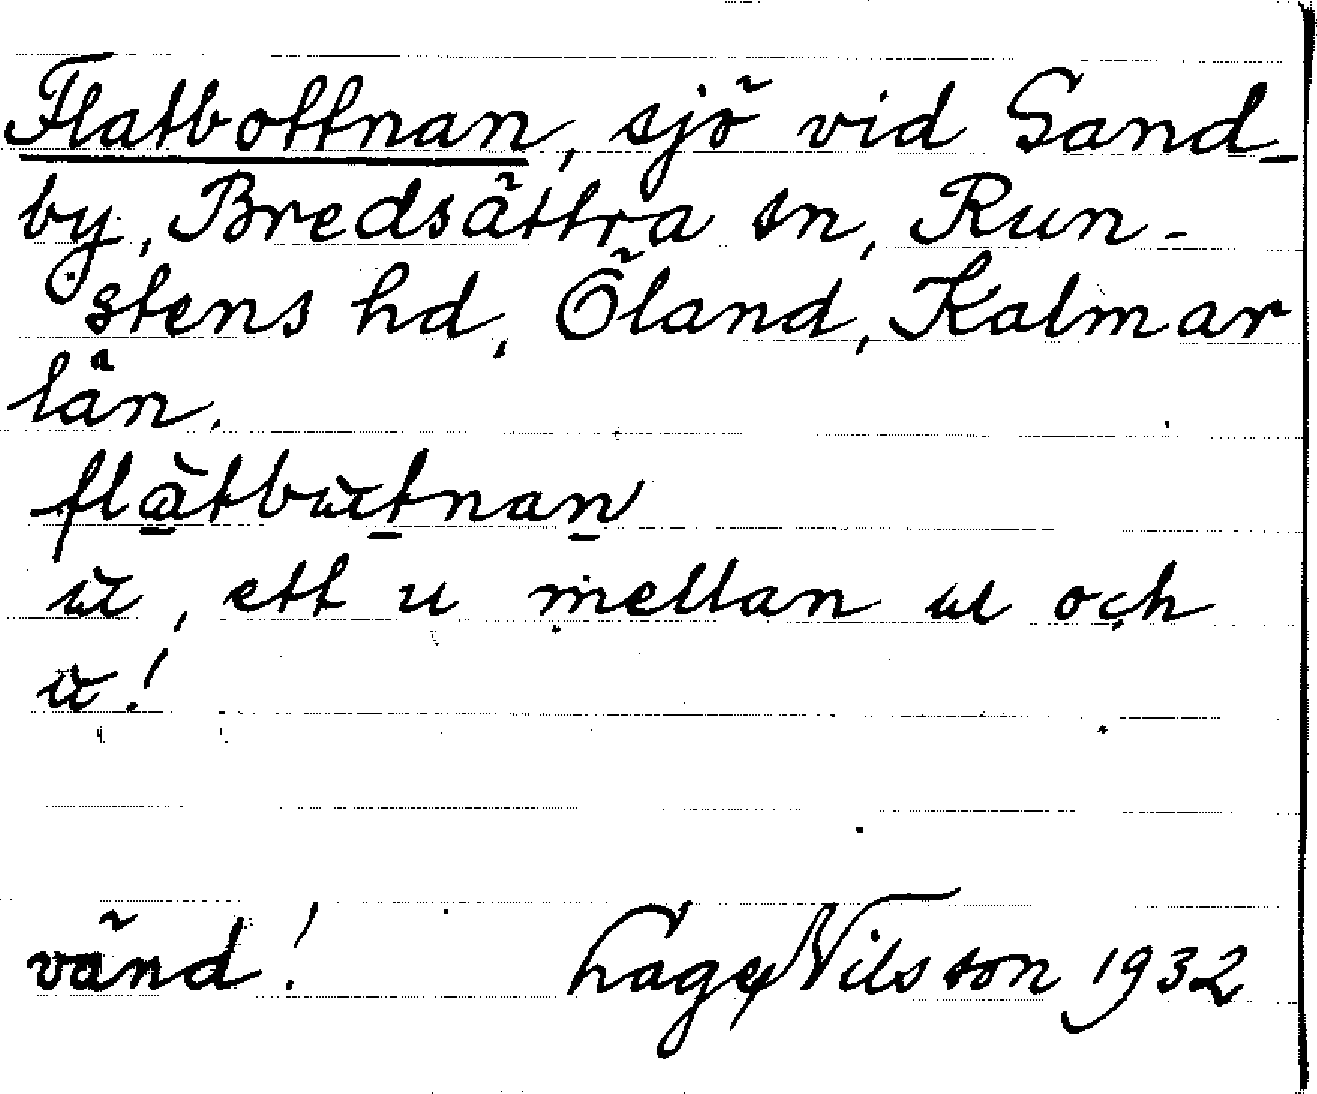 Flatbottnan, sjö vid Sand-
by, Bredsättra sn, Run-
stens hd, Öland, Kalmar
län.
flàtbùtnan
ù, ett u mellan u och
ù!
vänd! Hage Nilsson 1932